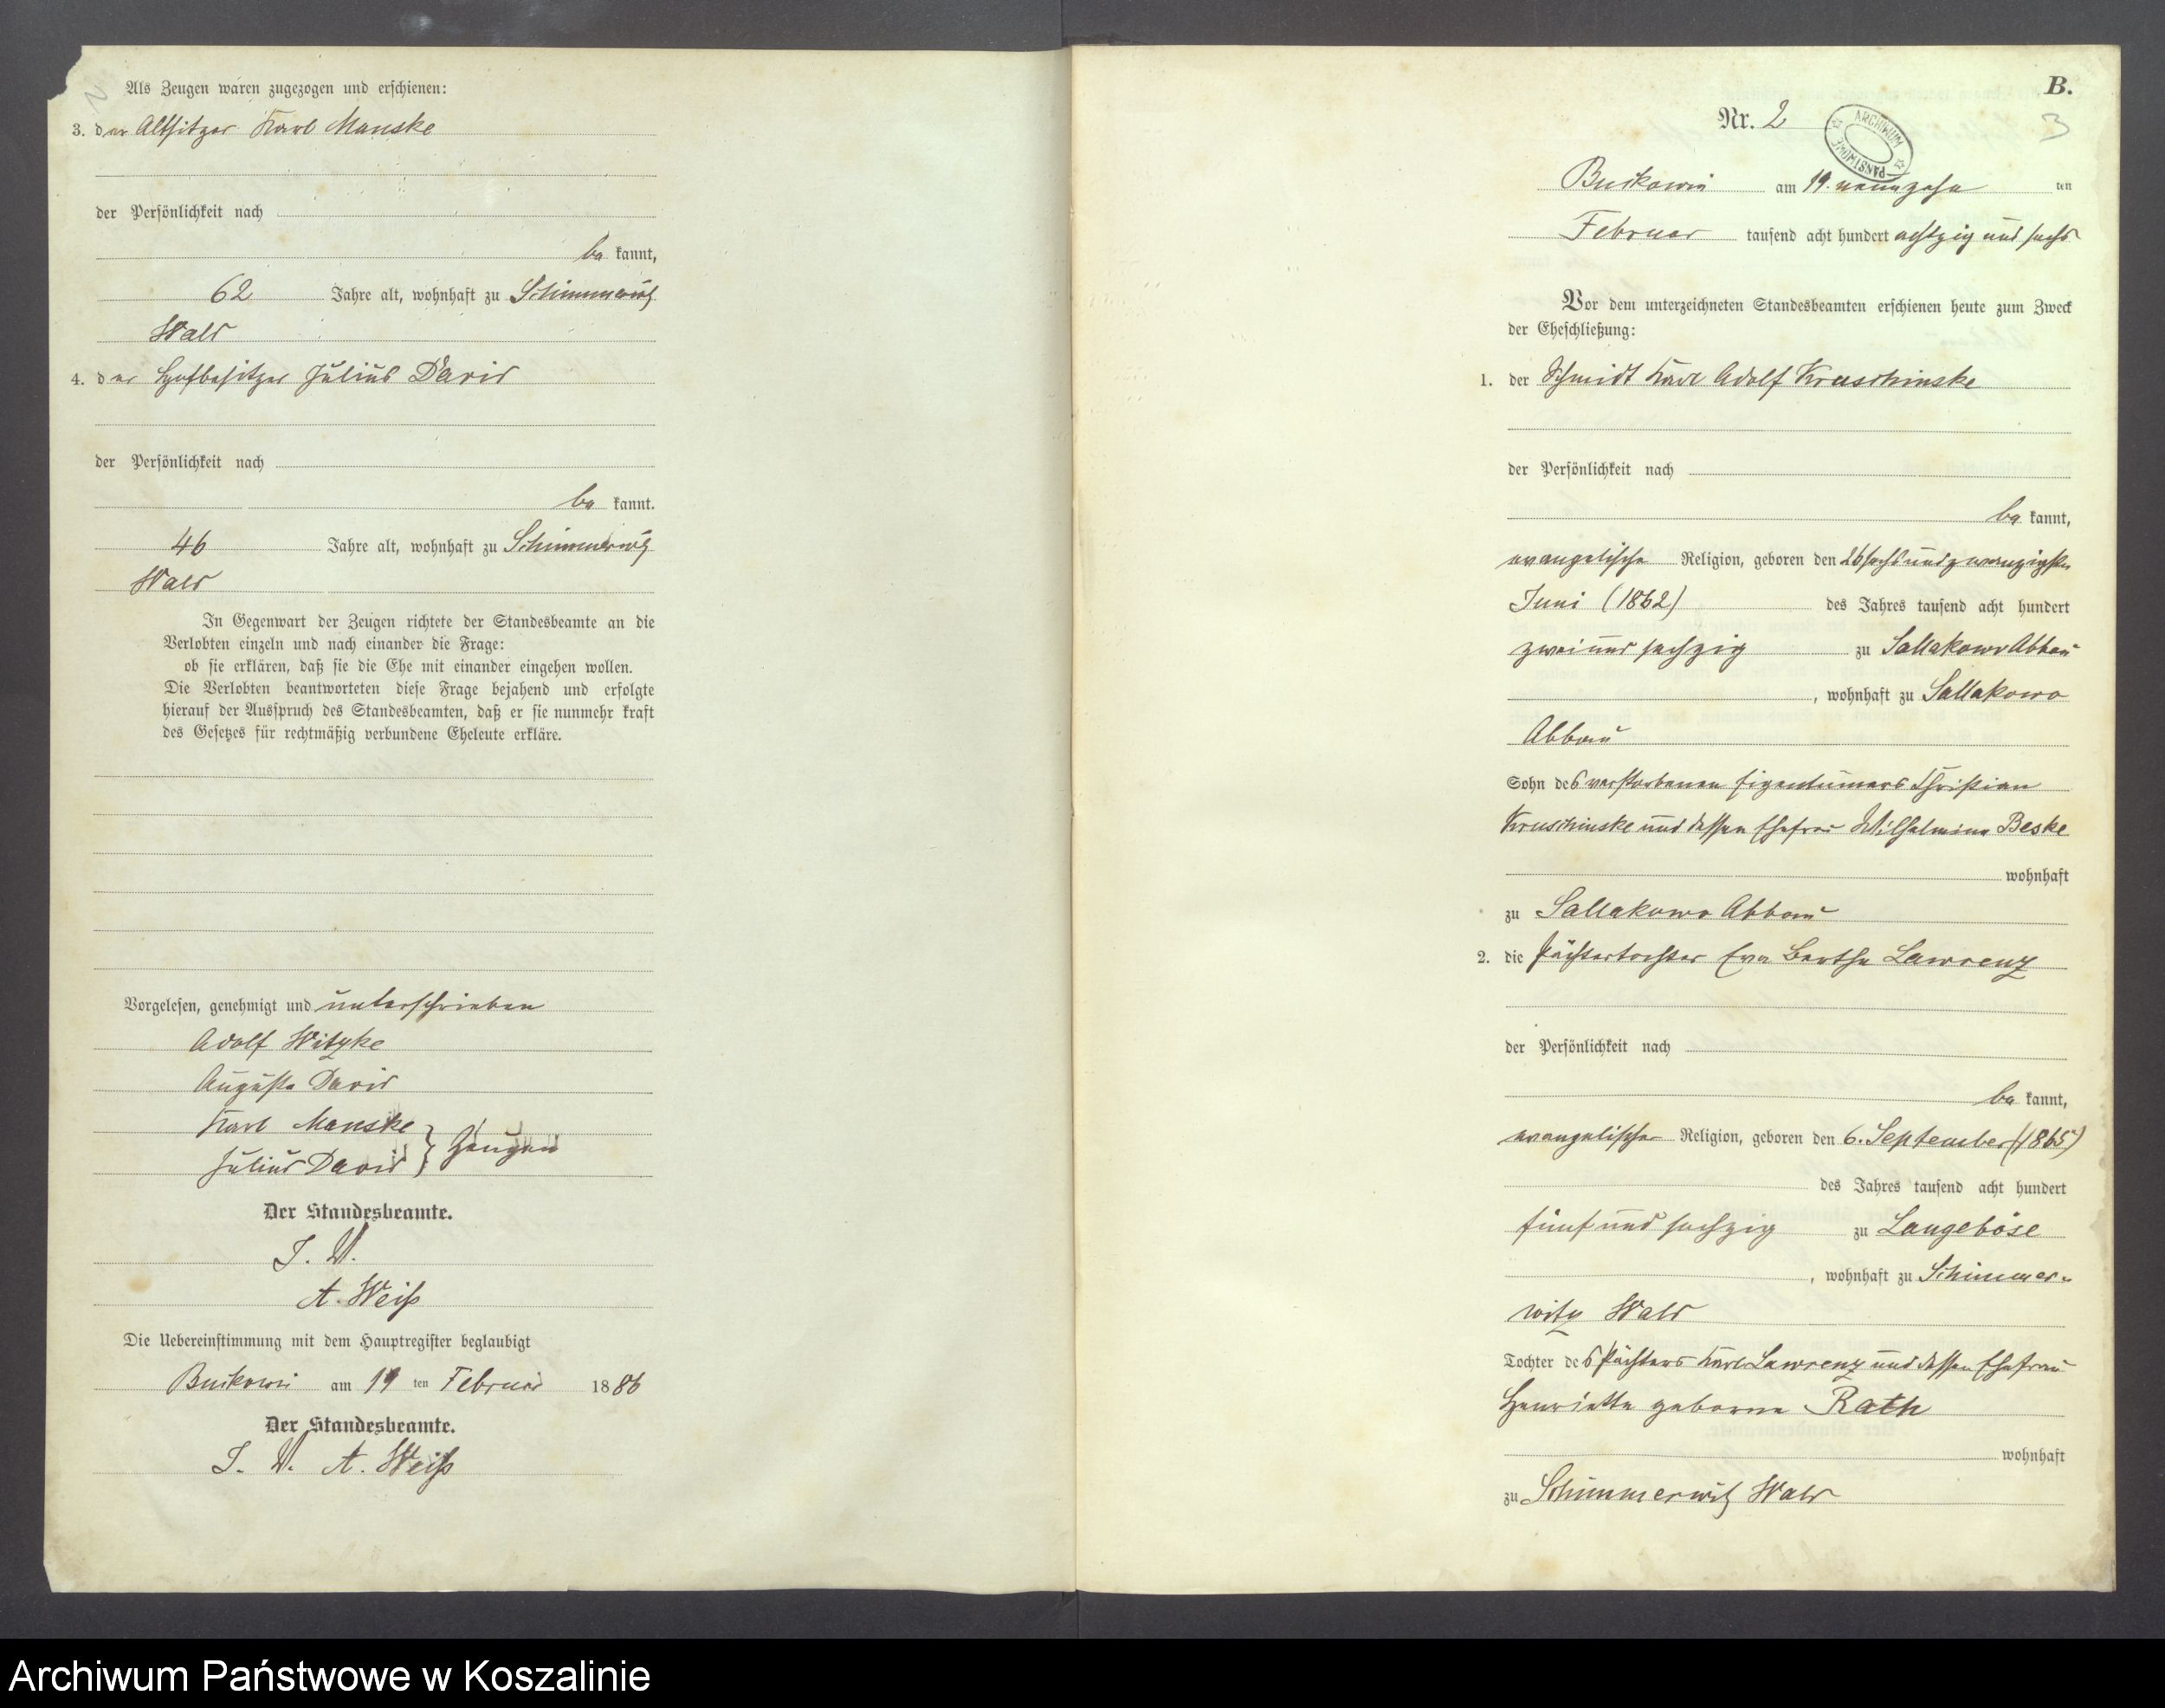 Als Zeugen waren zugezogen und erschienen:
3. der Altsitzer Karl Manske
der Persönlichkeit nach
be kannt,
62 Jahre alt, wohnhaft zu Schimmerwitz
Wald
4. der Hofbesitzer Julius David
der Persönlichkeit nach
be kannt.
46 Jahre alt, wohnhaft zu Schimmerwitz
Wald
In Gegenwart der Zeugen richtete der Standesbeamte an die
Verlobten einzeln und nach einander die Frage:
ob sie erklären, daß sie die Ehe mit einander eingehen wollen.
Die Verlobten beantworteten diese Frage bejahend und erfolgte
hierauf der Ausspruch des Standesbeamten, daß er sie nunmehr kraft
des Gesetzes für rechtmäßig verbundene Eheleute erkläre.
Vorgelesen, genehmigt und unterschrieben
Adolf Witzke
Auguste David
Karl Manske
Julius David } Zeugen
Der Standesbeamte.
I. V.
A. Weiß
Die Uebereinstimmung mit dem Hauptregister beglaubigt
Buckowin am 19 ten Februar 1886
Der Standesbeamte.
I. V. A. Weiß
B.
3
Nr. 2
ARCHIWUM PAŃSTWOWE
Buckowin am 19. neunzehn ten
Februar tausend acht hundert achtzig und sechs
Vor dem unterzeichneten Standesbeamten erschienen heute zum Zweck
der Eheschließung:
1. der Schmidt Karl Adolf Kruschinske
der Persönlichkeit nach
be kannt,
evangelischer Religion, geboren den 26 sechsundzwanzigsten
Juni (1862) des Jahres tausend acht hundert
zweiundsechzig zu Sallakowo Abbau
, wohnhaft zu Sallakowo
Abbau
Sohn des verstorbenen Eigentümers Christian
Kruschinske und dessen Ehefrau Wilhelmine Beske
wohnhaft
zu Sallakowo Abbau
2. die Pächtertochter Eva Bertha Lawrenz
der Persönlichkeit nach
be kannt,
evangelischer Religion, geboren den 6. September (1865)
des Jahres tausend acht hundert
fünf und sechzig zu Langeböse
, wohnhaft zu Schimmer-
witz Wald
Tochter des Pächters Karl Lawrenz und dessen Ehefrau
Henriette geborne Rath
wohnhaft
zu Schimmerwitz Wald
Archiwum Państwowe w Koszalinie